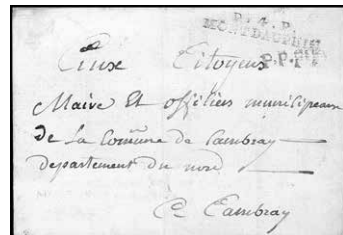 P. 4. P.
MONTDAUPHIN
P.P.
Aux Citoyens
Maire Et officiers municipeaux
de La Comune de Cambray
departement du nord
A Cambray